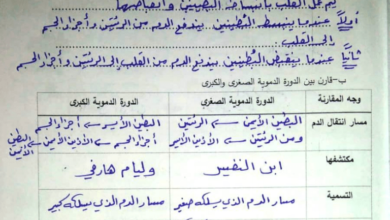 يتم عمل القلب بانبساط البطينين وانقباضها
أولاً: عندما ينبسط البُطينين.. يندفع الدم من الرئتين وأجزاء الجسم
إلى القلب
ثانياً: عندما ينقبض البُطينين.. يندفع الدم من القلب إلى الرئتين وأجزاء الجسم
ب- قارن بين الدورة الدموية الصغرى والكبرى
وجه المقارنة الدورة الدموية الصغرى الدورة الدموية الكبرى
مسار انتقال الدم البطين الأيمن إلى الرئتين ومن الرئتين إلى الأذين الأيسر البطين الأيسر أجزاء الجسم
مكتشفها ابن النفيس وليام هارفي
التسمية مسار الدم الذي يسلكه صغير مسار الدم الذي يسلكه كبير